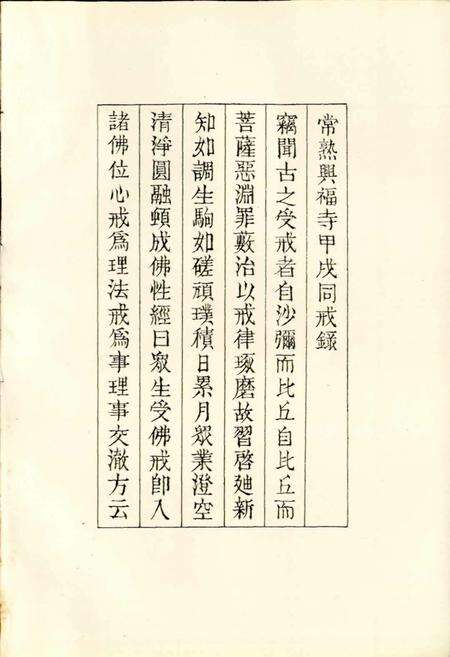 常熟興福寺甲戌同戒錄
竊聞古之受戒者自沙彌而比丘自比丘而
菩薩惡淵罪藪治以戒律琢磨故習啓廸新
知如調生駒如磋頑璞積日累月眾業澄空
清淨圓融頓成佛性經曰眾生受佛戒卽入
諸佛位心戒爲理法戒爲事理事交澈方云